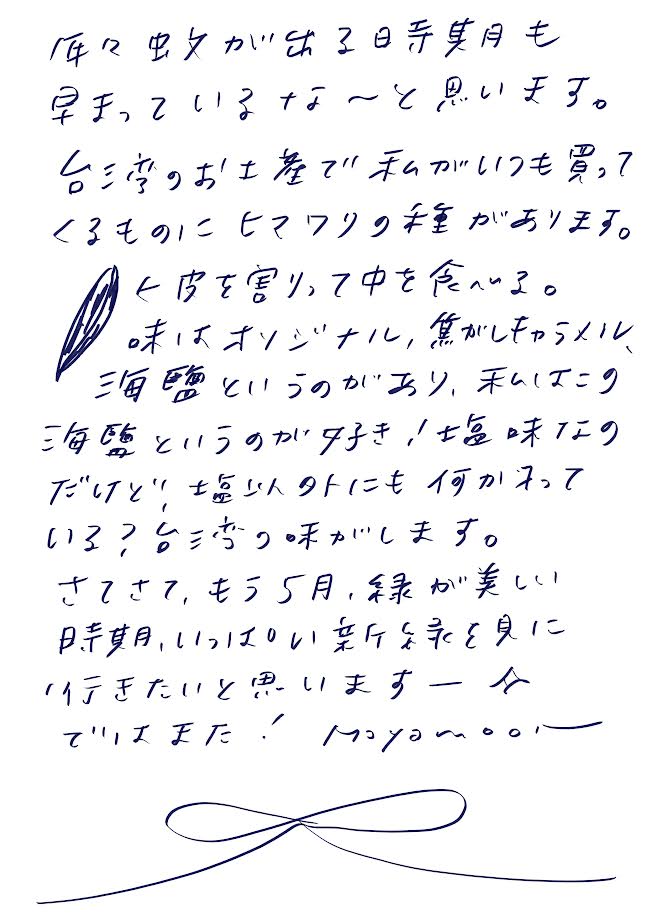 年々蚊が出る時期も
早まっているな〜と思います。
台湾のお土産で私がいつも買って
くるものにヒマワリの種があります。
← 皮を割って中を食べる。
味はオリジナル、焦がしキャラメル、
海鹽というのがあり、私はこの
海鹽というのが好き！塩味なの
だけど、塩以外にも何か入って
いる？台湾の味がします。
さてさて、もう5月、緑が美しい
時期、いっぱい新緑を見に
行きたいと思いますー☆
ではまた！ Mayamoon